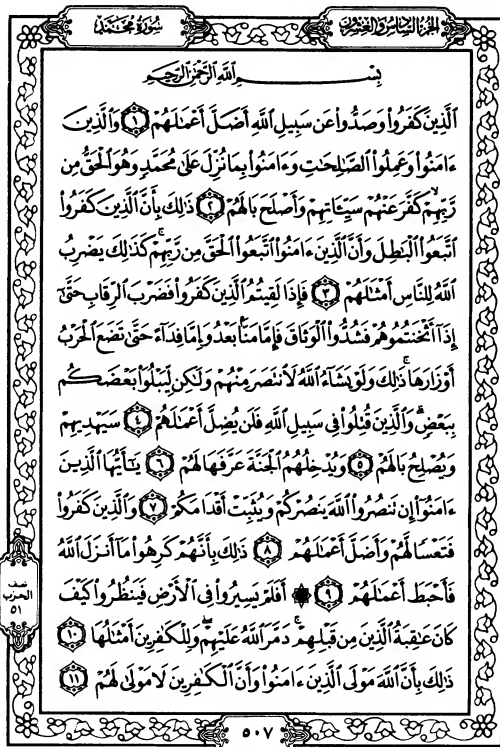 الجزء السادس والعشرون
سورة محمد
بِسْمِ اللَّهِ الرَّحْمَٰنِ الرَّحِيمِ
ٱلَّذِينَ كَفَرُوا۟ وَصَدُّوا۟ عَن سَبِيلِ ٱللَّهِ أَضَلَّ أَعْمَٰلَهُمْ ١ وَٱلَّذِينَ
ءَامَنُوا۟ وَعَمِلُوا۟ ٱلصَّٰلِحَٰتِ وَءَامَنُوا۟ بِمَا نُزِّلَ عَلَىٰ مُحَمَّدٍ وَهُوَ ٱلْحَقُّ مِن
رَّبِّهِمْ ۙ كَفَّرَ عَنْهُمْ سَيِّـَٔاتِهِمْ وَأَصْلَحَ بَالَهُمْ ٢ ذَٰلِكَ بِأَنَّ ٱلَّذِينَ كَفَرُوا۟
ٱتَّبَعُوا۟ ٱلْبَٰطِلَ وَأَنَّ ٱلَّذِينَ ءَامَنُوا۟ ٱتَّبَعُوا۟ ٱلْحَقَّ مِن رَّبِّهِمْ ۚ كَذَٰلِكَ يَضْرِبُ
ٱللَّهُ لِلنَّاسِ أَمْثَٰلَهُمْ ٣ فَإِذَا لَقِيتُمُ ٱلَّذِينَ كَفَرُوا۟ فَضَرْبَ ٱلرِّقَابِ حَتَّىٰٓ
إِذَآ أَثْخَنتُمُوهُمْ فَشُدُّوا۟ ٱلْوَثَاقَ فَإِمَّا مَنًّۢا بَعْدُ وَإِمَّا فِدَآءً حَتَّىٰ تَضَعَ ٱلْحَرْبُ
أَوْزَارَهَا ۚ ذَٰلِكَ وَلَوْ يَشَآءُ ٱللَّهُ لَٱنتَصَرَ مِنْهُمْ وَلَٰكِن لِّيَبْلُوَا۟ بَعْضَكُم
بِبَعْضٍ ۗ وَٱلَّذِينَ قُتِلُوا۟ فِى سَبِيلِ ٱللَّهِ فَلَن يُضِلَّ أَعْمَٰلَهُمْ ٤ سَيَهْدِيهِمْ
وَيُصْلِحُ بَالَهُمْ ٥ وَيُدْخِلُهُمُ ٱلْجَنَّةَ عَرَّفَهَا لَهُمْ ٦ يَٰٓأَيُّهَا ٱلَّذِينَ
ءَامَنُوٓا۟ إِن تَنصُرُوا۟ ٱللَّهَ يَنصُرْكُمْ وَيُثَبِّتْ أَقْدَامَكُمْ ٧ وَٱلَّذِينَ كَفَرُوا۟
فَتَعْسًا لَّهُمْ وَأَضَلَّ أَعْمَٰلَهُمْ ٨ ذَٰلِكَ بِأَنَّهُمْ كَرِهُوا۟ مَآ أَنزَلَ ٱللَّهُ
فَأَحْبَطَ أَعْمَٰلَهُمْ ٩ ۞ أَفَلَمْ يَسِيرُوا۟ فِى ٱلْأَرْضِ فَيَنظُرُوا۟ كَيْفَ
كَانَ عَٰقِبَةُ ٱلَّذِينَ مِن قَبْلِهِمْ ۚ دَمَّرَ ٱللَّهُ عَلَيْهِمْ ۖ وَلِلْكَٰفِرِينَ أَمْثَٰلُهَا ١٠
ذَٰلِكَ بِأَنَّ ٱللَّهَ مَوْلَى ٱلَّذِينَ ءَامَنُوا۟ وَأَنَّ ٱلْكَٰفِرِينَ لَا مَوْلَىٰ لَهُمْ ١١
نصف
الحزب
٥١
٥٠٧